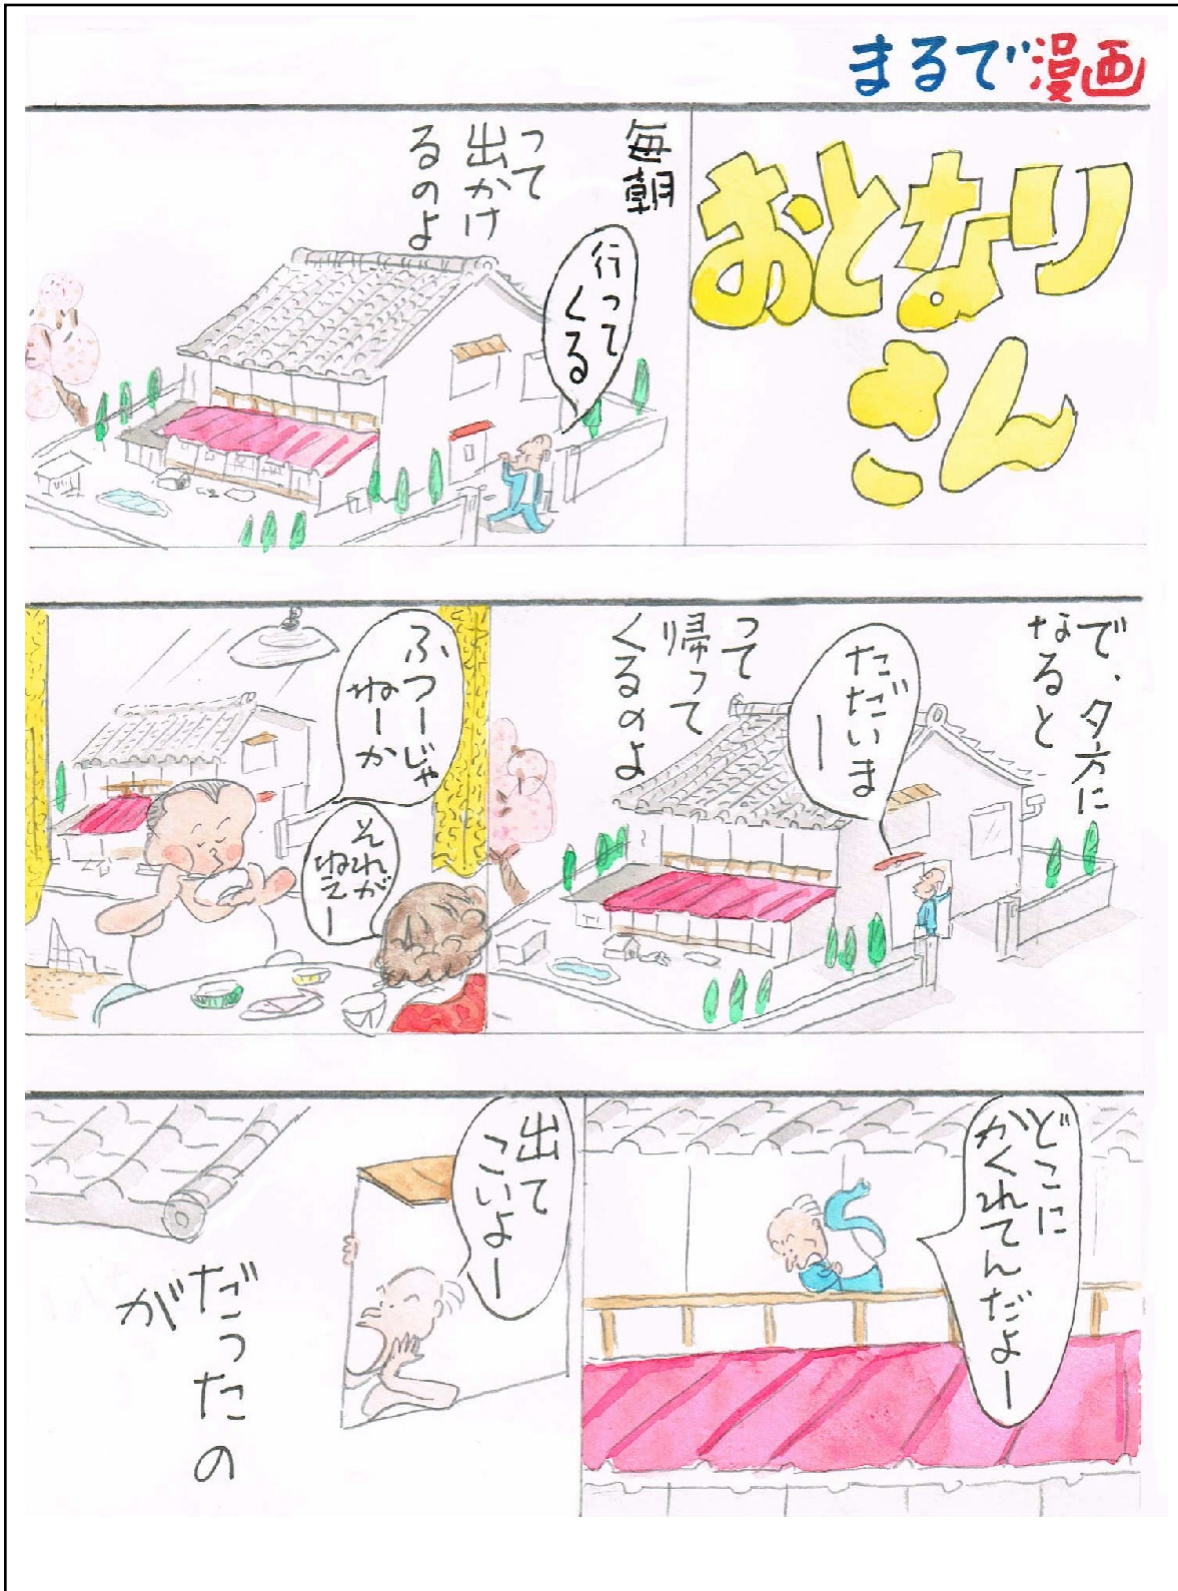 まるで漫画
おとなり
さん
毎朝
行って
くる
って
出かけ
るのよ
で、夕方に
なると
ただいま
ー
って
帰って
くるのよ
ふつーじゃ
ねーか
それが
ねえー
どこに
かくれてんだよー
出て
こいよー
だったの
が